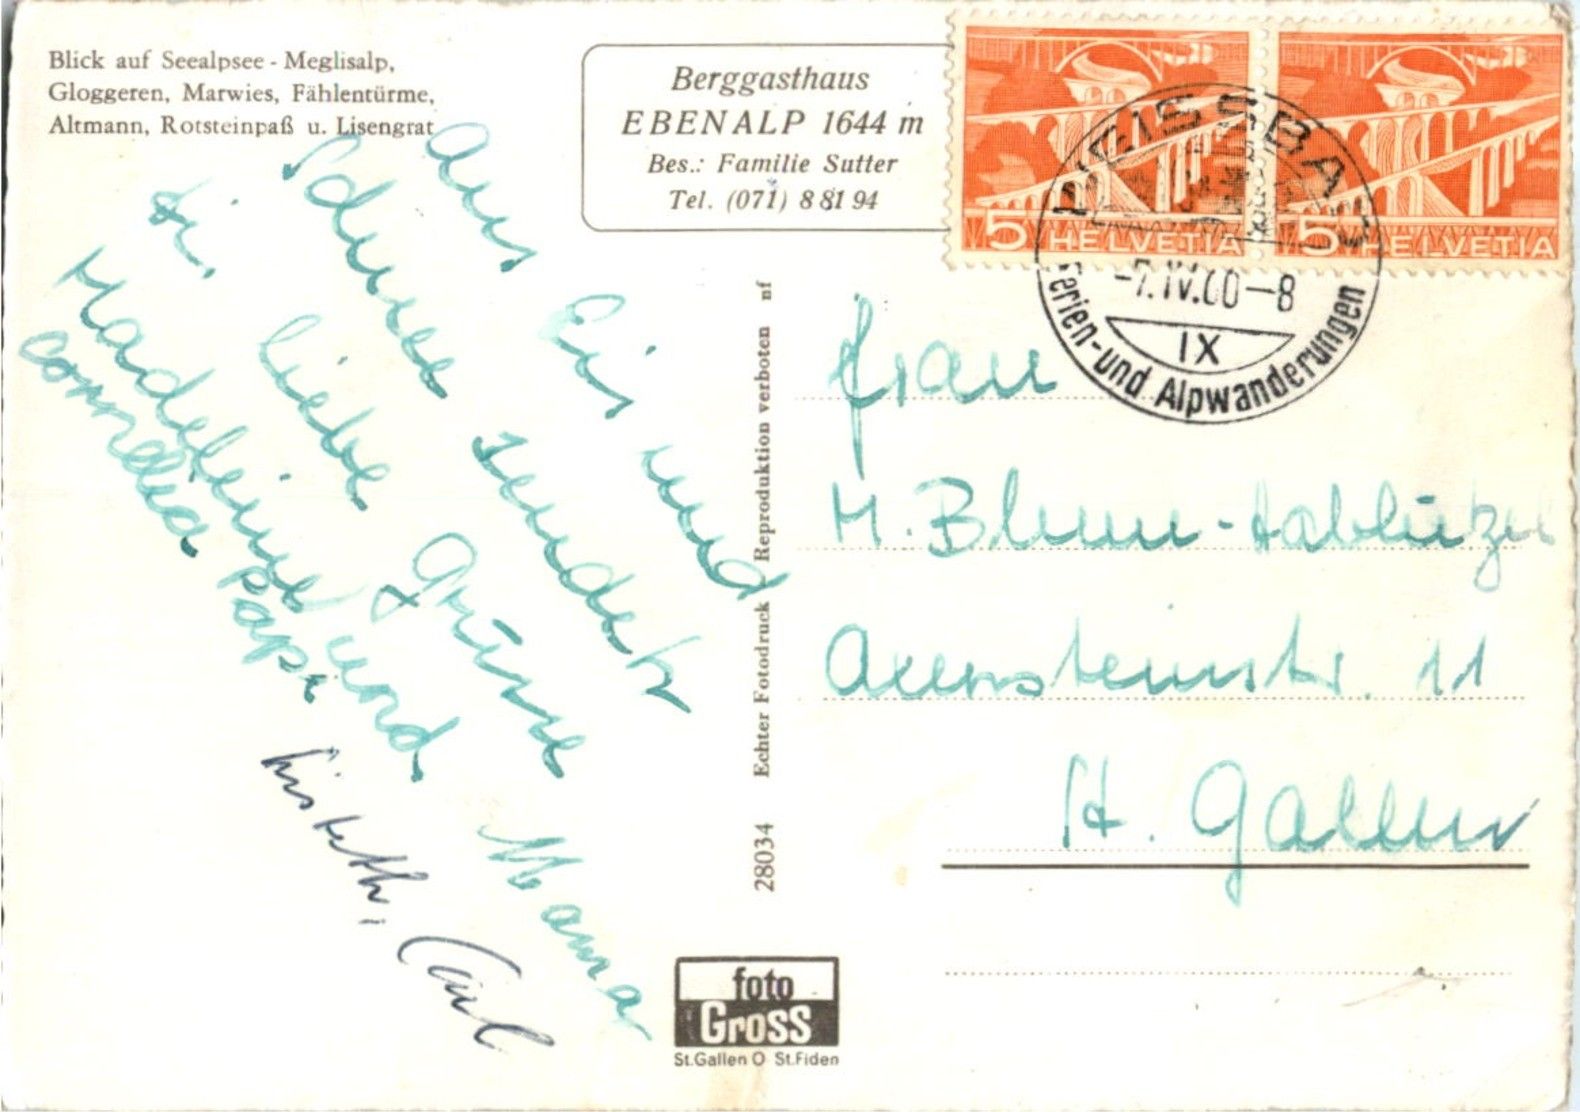 Blick auf Seealpsee - Meglisalp,
Gloggeren, Marwies, Fählentürme,
Altmann, Rotsteinpaß u. Lisengrat
Berggasthaus
EBENALP 1644 m
Bes.: Familie Sutter
Tel. (071) 8 81 94
5 HELVETIA
5 HELVETIA
WEISSBAD
-7.IV.60-8
IX
Ferien- und Alpwanderungen
Aus Eis und
Schnee sendet
Dir liebe Grüsse Mama
Madeleine und
Cornelia Papa
Lisbeth, Carl
Frau
M. Blum-Hablützel
Axensteinstr. 11
St. Gallen
28034 Echter Fotodruck Reproduktion verboten nf
foto
Gross
St.Gallen O St.Fiden